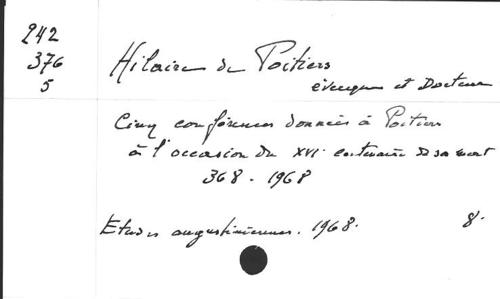 242
376
5
Hilaire de Poitiers
évêque et Docteur
Cinq conférences données à Poitiers
à l'occasion du XVIe centenaire de sa mort
368 - 1968
Etudes augustiniennes. 1968. 8.